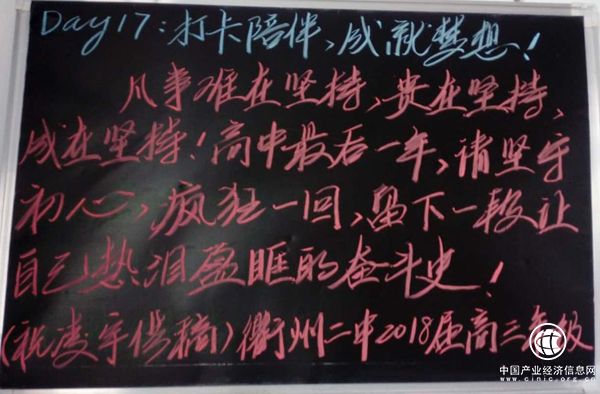 Day17:打卡陪伴、成就梦想!
凡事难在坚持,贵在坚持,
成在坚持!高中最后一年,请坚守
初心,疯狂一回,留下一段让
自己热泪盈眶的奋斗史!
(祝凌宇供稿)衢州二中2018届高三年级
中国产业经济信息网
www.cinic.org.cn